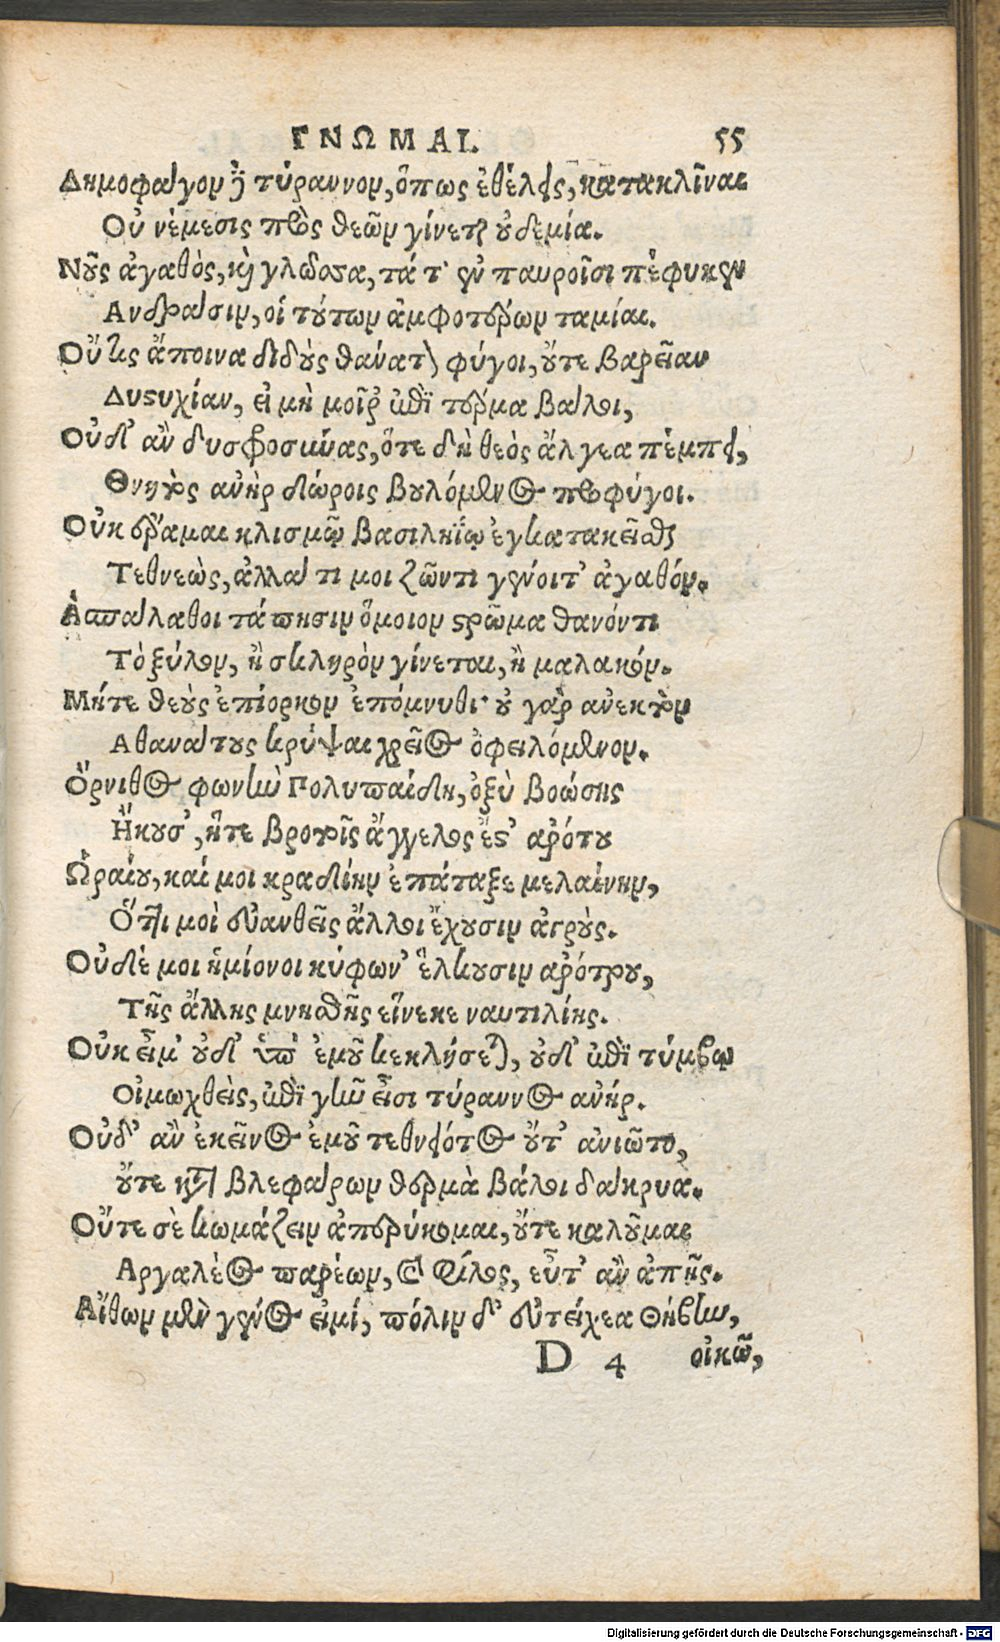 ΓΝΩΜΑΙ. 55
Δημοφάγον δὲ τύραννον, ὅπως ἐθέλεις, κατακλῖναι
Οὐ νέμεσις πρὸς θεῶν γίνεται οὐδεμία.
Νοῦς ἀγαθὸς, καὶ γλῶσσα, τά τ' ἐν παυροῖσι πέφυκεν
Ἀνδράσιν, οἱ τούτων ἀμφοτέρων ταμίαι.
Οὔ τις ἄποινα διδοὺς θάνατον φύγοι, οὔτε βαρεῖαν
Δυστυχίαν, εἰ μὴ μοῖρ' ἐπὶ τέρμα βάλοι,
Οὐδ' ἂν δυσφροσύνας, ὅτε δὴ θεὸς ἄλγεα πέμπει,
Θνητὸς ἀνὴρ δώροις βουλόμενος προφύγοι.
Οὐκ ἔραμαι κλισμῷ βασιληΐῳ ἐγκατακεῖσθαι
Τεθνεὼς, ἀλλά τι μοι ζῶντι γένοιτ' ἀγαθόν.
Ἀσπάλαθοι τάπησιν ὅμοιον στρῶμα θανόντι
Τὸ ξύλον, ἢ σκληρὸν γίνεται, ἢ μαλακόν.
Μήτε θεοὺς ἐπίορκον ἐπόμνυθι· οὐ γὰρ ἀνεκτὸν
Ἀθανάτους κρύψαι χρεῖος ὀφειλόμενον.
Ὄρνιθος φωνὴν Πολυπαίδη, ὀξὺ βοώσης
Ἤκουσ', ἥτε βροτοῖς ἄγγελος ἔστ' ἀρότου
Ὡραίου, καί μοι κραδίην ἐπάταξε μελαίνην,
Ὅττι μοὶ εὐανθεῖς ἄλλοι ἔχουσιν ἀγρούς.
Οὐδέ μοι ἡμίονοι κύφων' ἕλκουσιν ἀρότρου,
Τῆς ἄλλης μνησθῆς εἵνεκε ναυτιλίης.
Οὐκ εἶμ' οὐδ' ὑπ' ἐμοῦ κεκλήσεται, οὐδ' ἐπὶ τύμβῳ
Οἰμωχθεὶς, ἐπὶ γῆν εἶσι τύραννος ἀνήρ.
Οὐδ' ἂν ἐκεῖνος ἐμοῦ τεθνειότος οὔτ' ἀνιῶτο,
οὔτε κατὰ βλεφάρων θερμὰ βάλοι δάκρυα.
Οὔτε σὲ κωμάζειν ἀπερύκομαι, οὔτε καλοῦμαι
Ἀργαλέος παρέων, καὶ φίλος, εὖτ' ἂν ἀπῇς.
Αἴθων μὲν γένος εἰμί, πόλιν δ' εὐτείχεα Θήβην,
D 4 οἰκῶ,
Digitalisierung gefördert durch die Deutsche Forschungsgemeinschaft - DFG